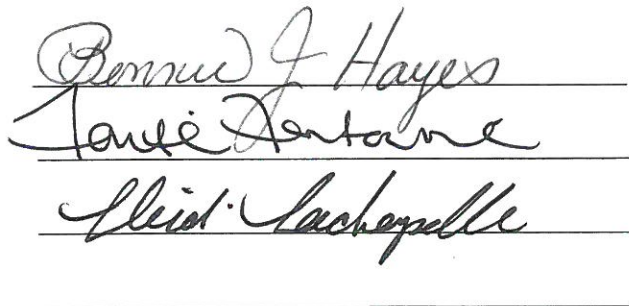 Bonnie J Hayes
Fontaine
Heidi Lachapelle